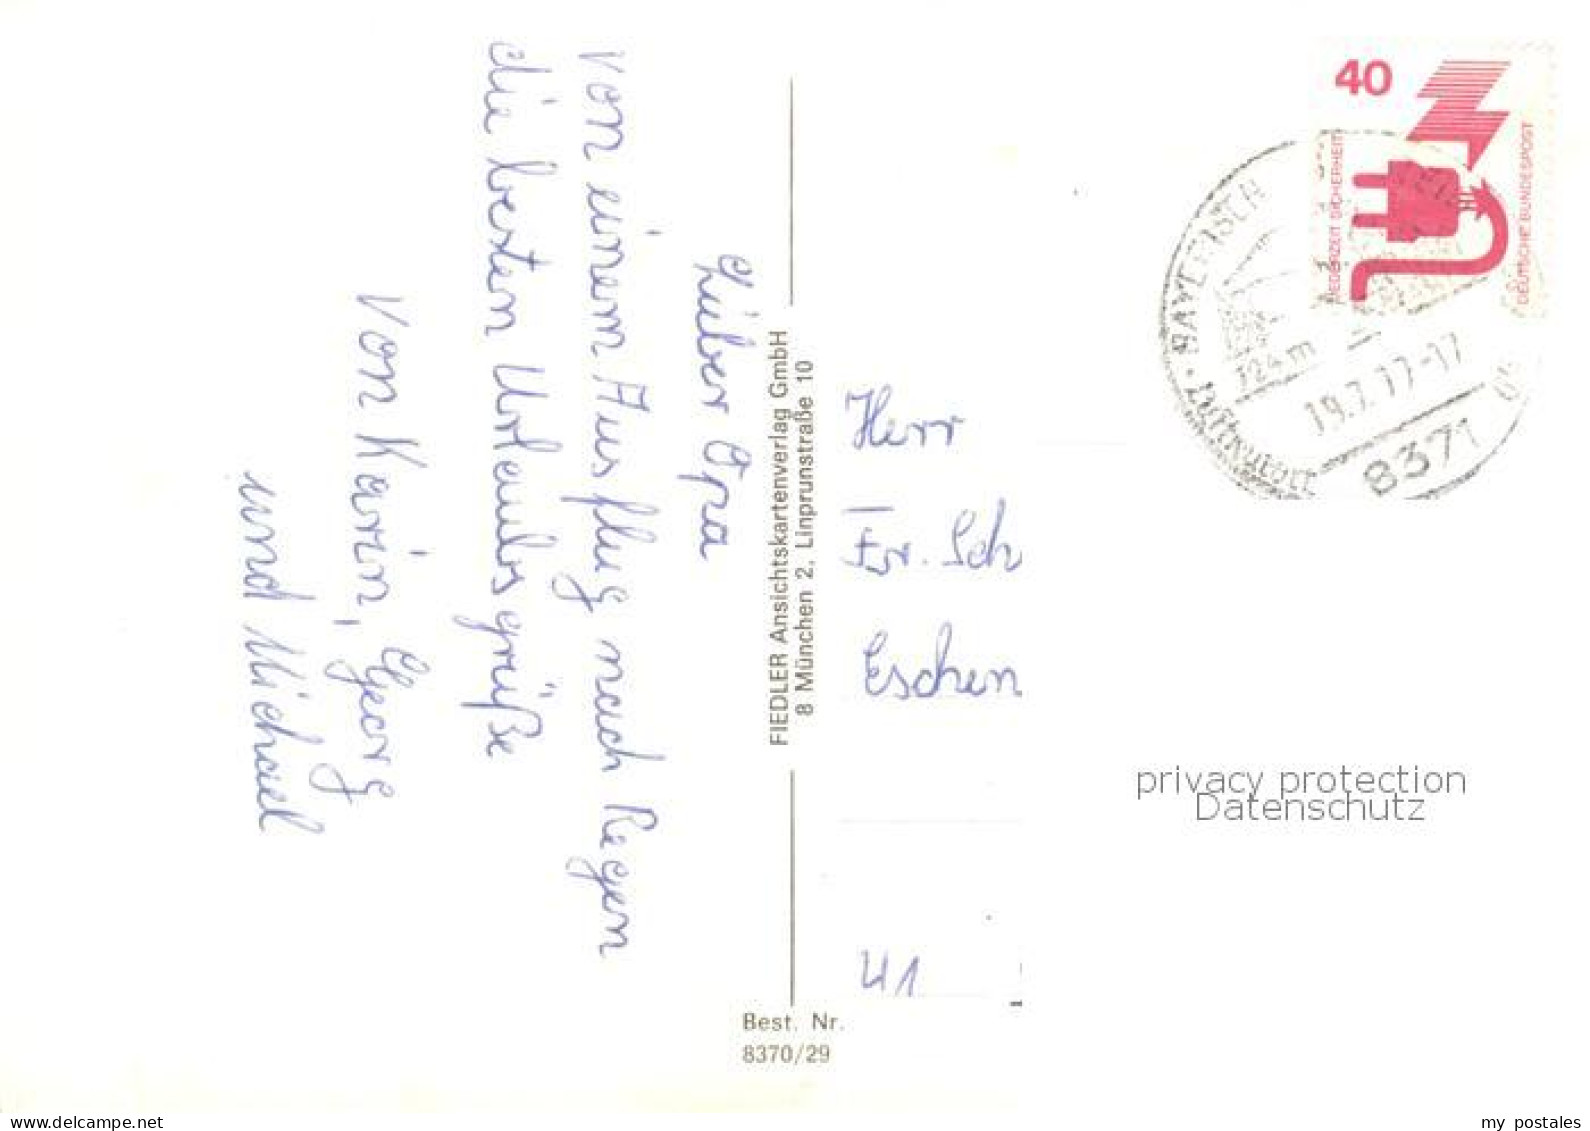 Lieber Opa
Von einem Ausflug nach Regen
die besten Urlaubsgrüße
Von Karin, Georg
und Michael
FIEDLER Ansichtskartenverlag GmbH
8 München 2, Linprunstraße 10
Best. Nr.
8370/29
40
JEDERZEIT SICHERHEIT
DEUTSCHE BUNDESPOST
BAYERISCH
724 m
19.7.77-17
Luftkurort
8371
Herr
Fr. Sch
Eschen
41
privacy protection
Datenschutz
my-postales.com